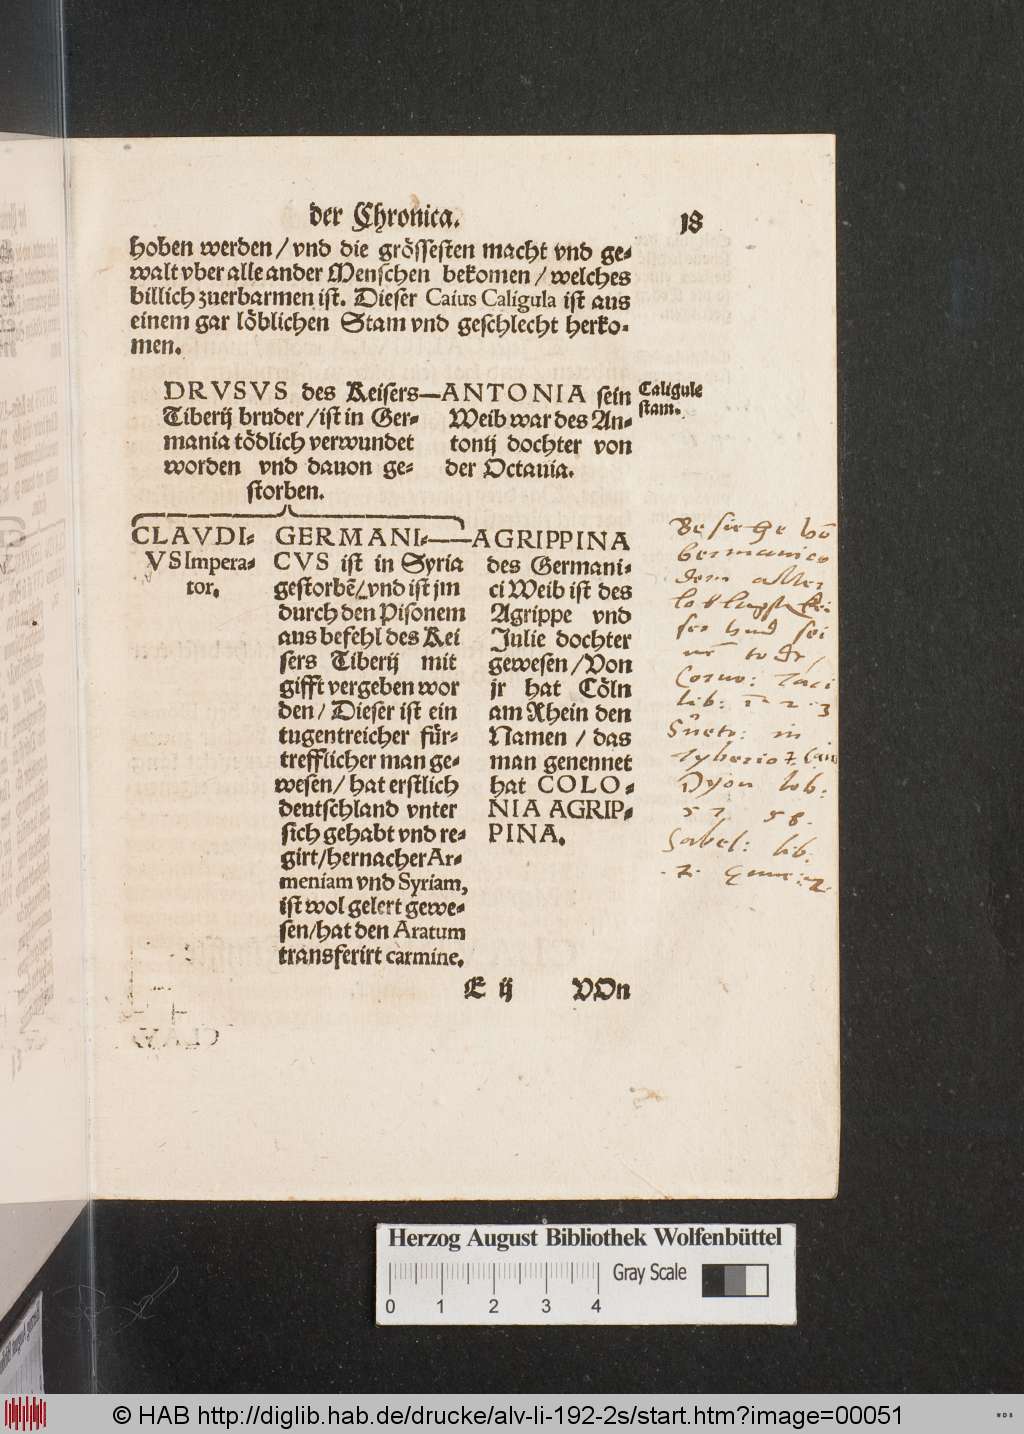 der Chronica. 18
hoben werden / vnd die grössesten macht vnd ge-
walt vber alle ander Menschen bekomen / welches
billich zuerbarmen ist. Dieser Caius Caligula ist aus
einem gar löblichen Stam vnd geschlecht herko-
men.
DRVSVS des Keisers—ANTONIA sein
Tiberij bruder / ist in Ger- Weib war des An-
mania tödlich verwundet tonij dochter von
worden vnd dauon ge- der Octauia.
storben.
Caligule
stam.
CLAVDI-
VS Impera-
tor.
GERMANI-
CVS ist in Syria
gestorbē / vnd ist jm
durch den Pisonem
aus befehl des Kei
sers Tiberij mit
gifft vergeben wor
den / Dieser ist ein
tugentreicher für-
trefflicher man ge-
wesen / hat erstlich
deutschland vnter
sich gehabt vnd re-
girt / hernacher Ar-
meniam vnd Syriam,
ist wol gelert gewe-
sen / hat den Aratum
transferirt carmine.
AGRIPPINA
des Germani-
ci Weib ist des
Agrippe vnd
Julie dochter
gewesen / Von
jr hat Cöln
am Rhein den
Namen / das
man genennet
hat COLO-
NIA AGRIP-
PINA.
Besiehe vō
Germanico
dem aller
ser vnd sei
Corne: Taci
lib: 1 2 3
Sueto: in
Tyberio
Dyon lib:
57 58.
Sabel: lib.
E ij VOn
Herzog August Bibliothek Wolfenbüttel
Gray Scale
0 1 2 3 4
© HAB http://diglib.hab.de/drucke/alv-li-192-2s/start.htm?image=00051